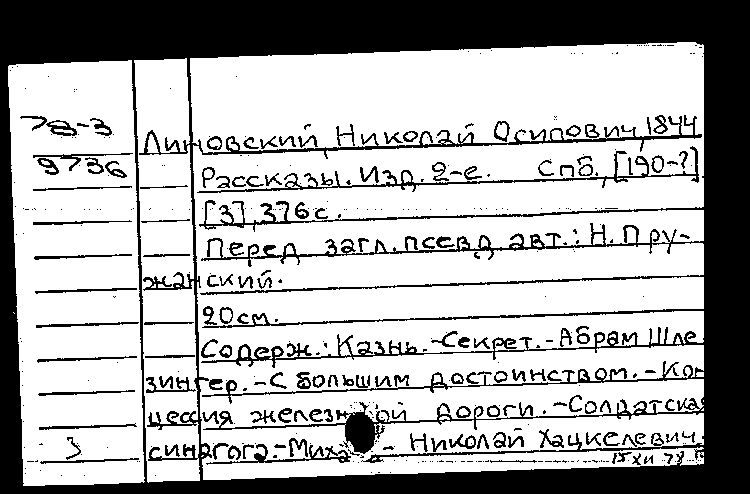 78-3
Линовский, Николай Осипович, 1844
9736
Рассказы. Изд. 2-е. Спб., [190-?]
[3], 376 с.
Перед загл. псевд. авт.: Н. Пру-
жанский.
20 см.
Содерж.: Казнь. - Секрет. - Абрам Шле
зингер. - С большим достоинством. - Кон
цессия железной дороги. - Солдатская
3 синагога. - - Николай Хацкелевич.
15 XII 78